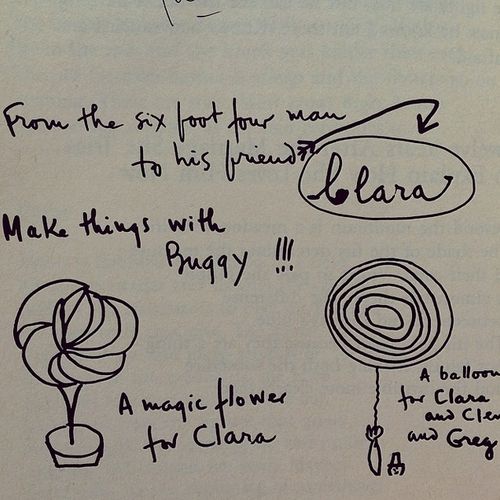 From the six foot four man
to his friend
Clara
Make things with
Buggy !!!
A magic flower
for Clara
A balloon
for Clara
and Clem
and Greg